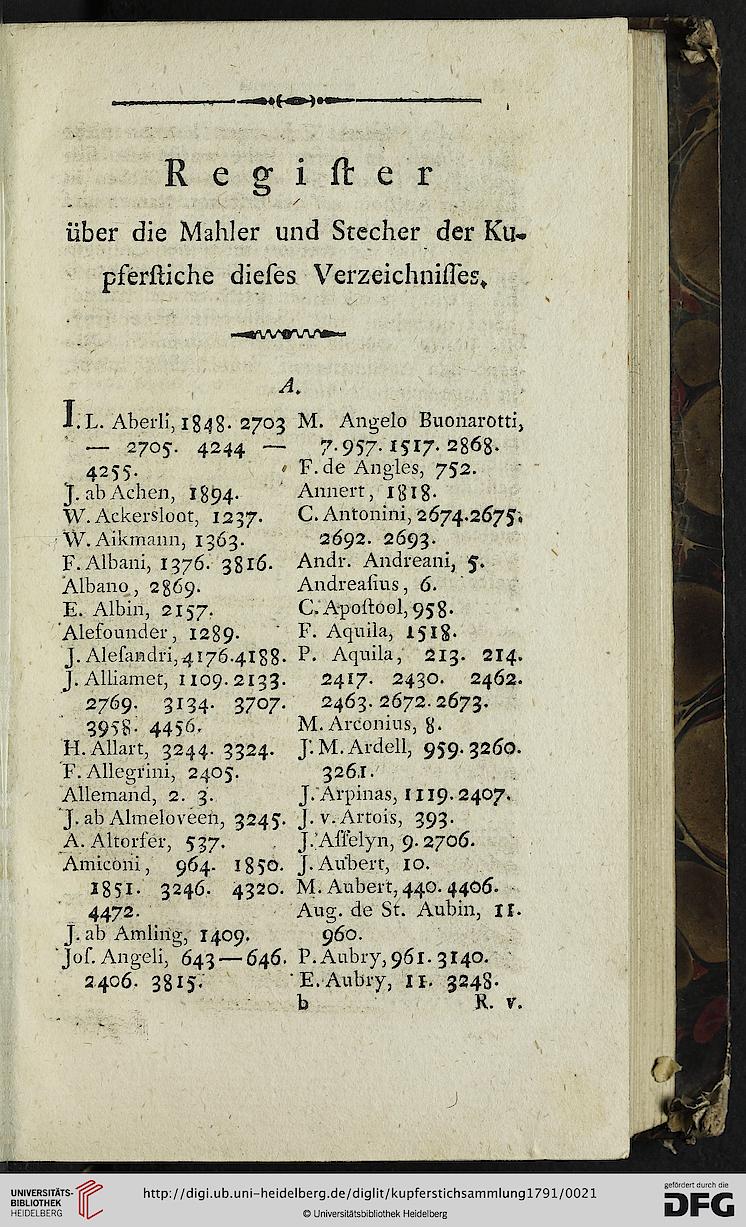 Regiſter
über die Mahler und Stecher der Ku-
pferſtiche dieſes Verzeichniſſes.
A.
I. L. Aberli, 1848. 2703
— 2705. 4244 —
4255.
J. ab Achen, 1894.
W. Ackersloot, 1237.
W. Aikmann, 1363.
F. Albani, 1376. 3816.
Albano, 2869.
E. Albin, 2157.
Alefounder, 1289.
J. Aleſandri, 4176.4188.
J. Alliamet, 1109. 2133.
2769. 3134. 3707.
3958. 4456.
H. Allart, 3244. 3324.
F. Allegrini, 2405.
Allemand, 2. 3.
J. ab Almeloveen, 3245.
A. Altorfer, 537.
Amiconi, 964. 1850.
1851. 3246. 4320.
4472.
J. ab Amling, 1409.
Joſ. Angeli, 643 — 646.
2406. 3815.
M. Angelo Buonarotti,
7. 957. 1517. 2868.
F. de Angles, 752.
Annert, 1818.
C. Antonini, 2674.2675.
2692. 2693.
Andr. Andreani, 5.
Andreaſius, 6.
C. Apoſtool, 958.
F. Aquila, 1518.
P. Aquila, 213. 214.
2417. 2430. 2462.
2463. 2672. 2673.
M. Arconius, 8.
J. M. Ardell, 959. 3260.
3261.
J. Arpinas, 1119. 2407.
J. v. Artois, 393.
J. Aſſelyn, 9. 2706.
J. Aubert, 10.
M. Aubert, 440. 4406.
Aug. de St. Aubin, 11.
960.
P. Aubry, 961. 3140.
E. Aubry, 11. 3248.
b R. v.
UNIVERSITÄTS-
BIBLIOTHEK
HEIDELBERG
http://digi.ub.uni-heidelberg.de/diglit/kupferstichsammlung1791/0021
© Universitätsbibliothek Heidelberg
gefördert durch die
DFG